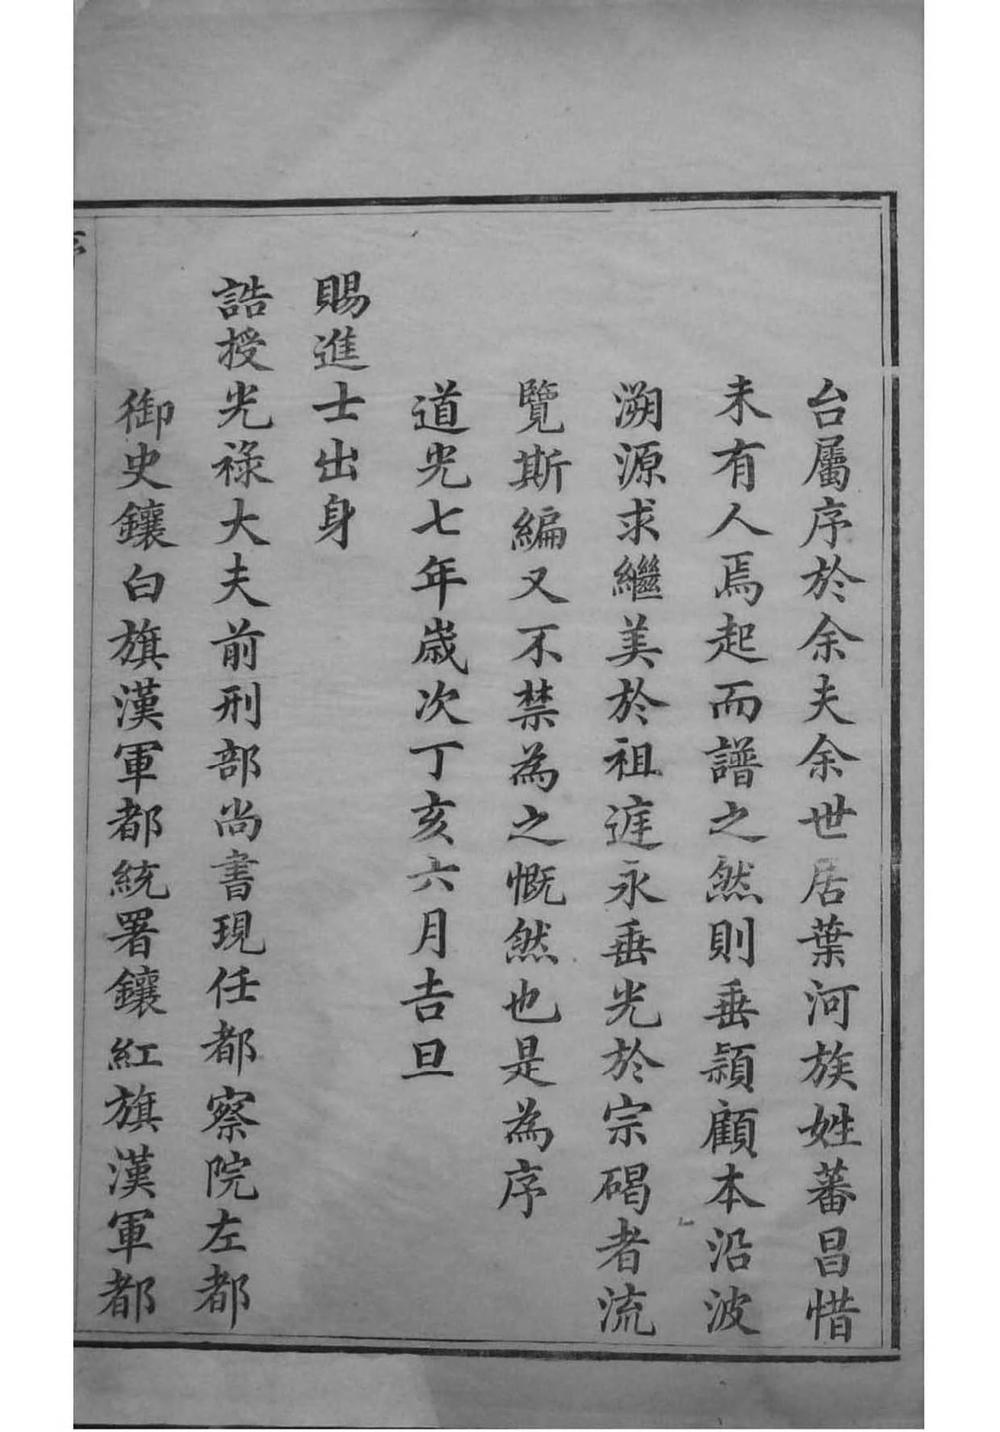 台屬序於余夫余世居葉河族姓蕃昌惜
未有人焉起而譜之然則垂穎顧本沿波
溯源求繼美於祖庭永垂光於宗碣者流
覽斯編又不禁為之慨然也是為序
道光七年歲次丁亥六月吉旦
賜進士出身
誥授光祿大夫前刑部尚書現任都察院左都
御史鑲白旗漢軍都統署鑲紅旗漢軍都